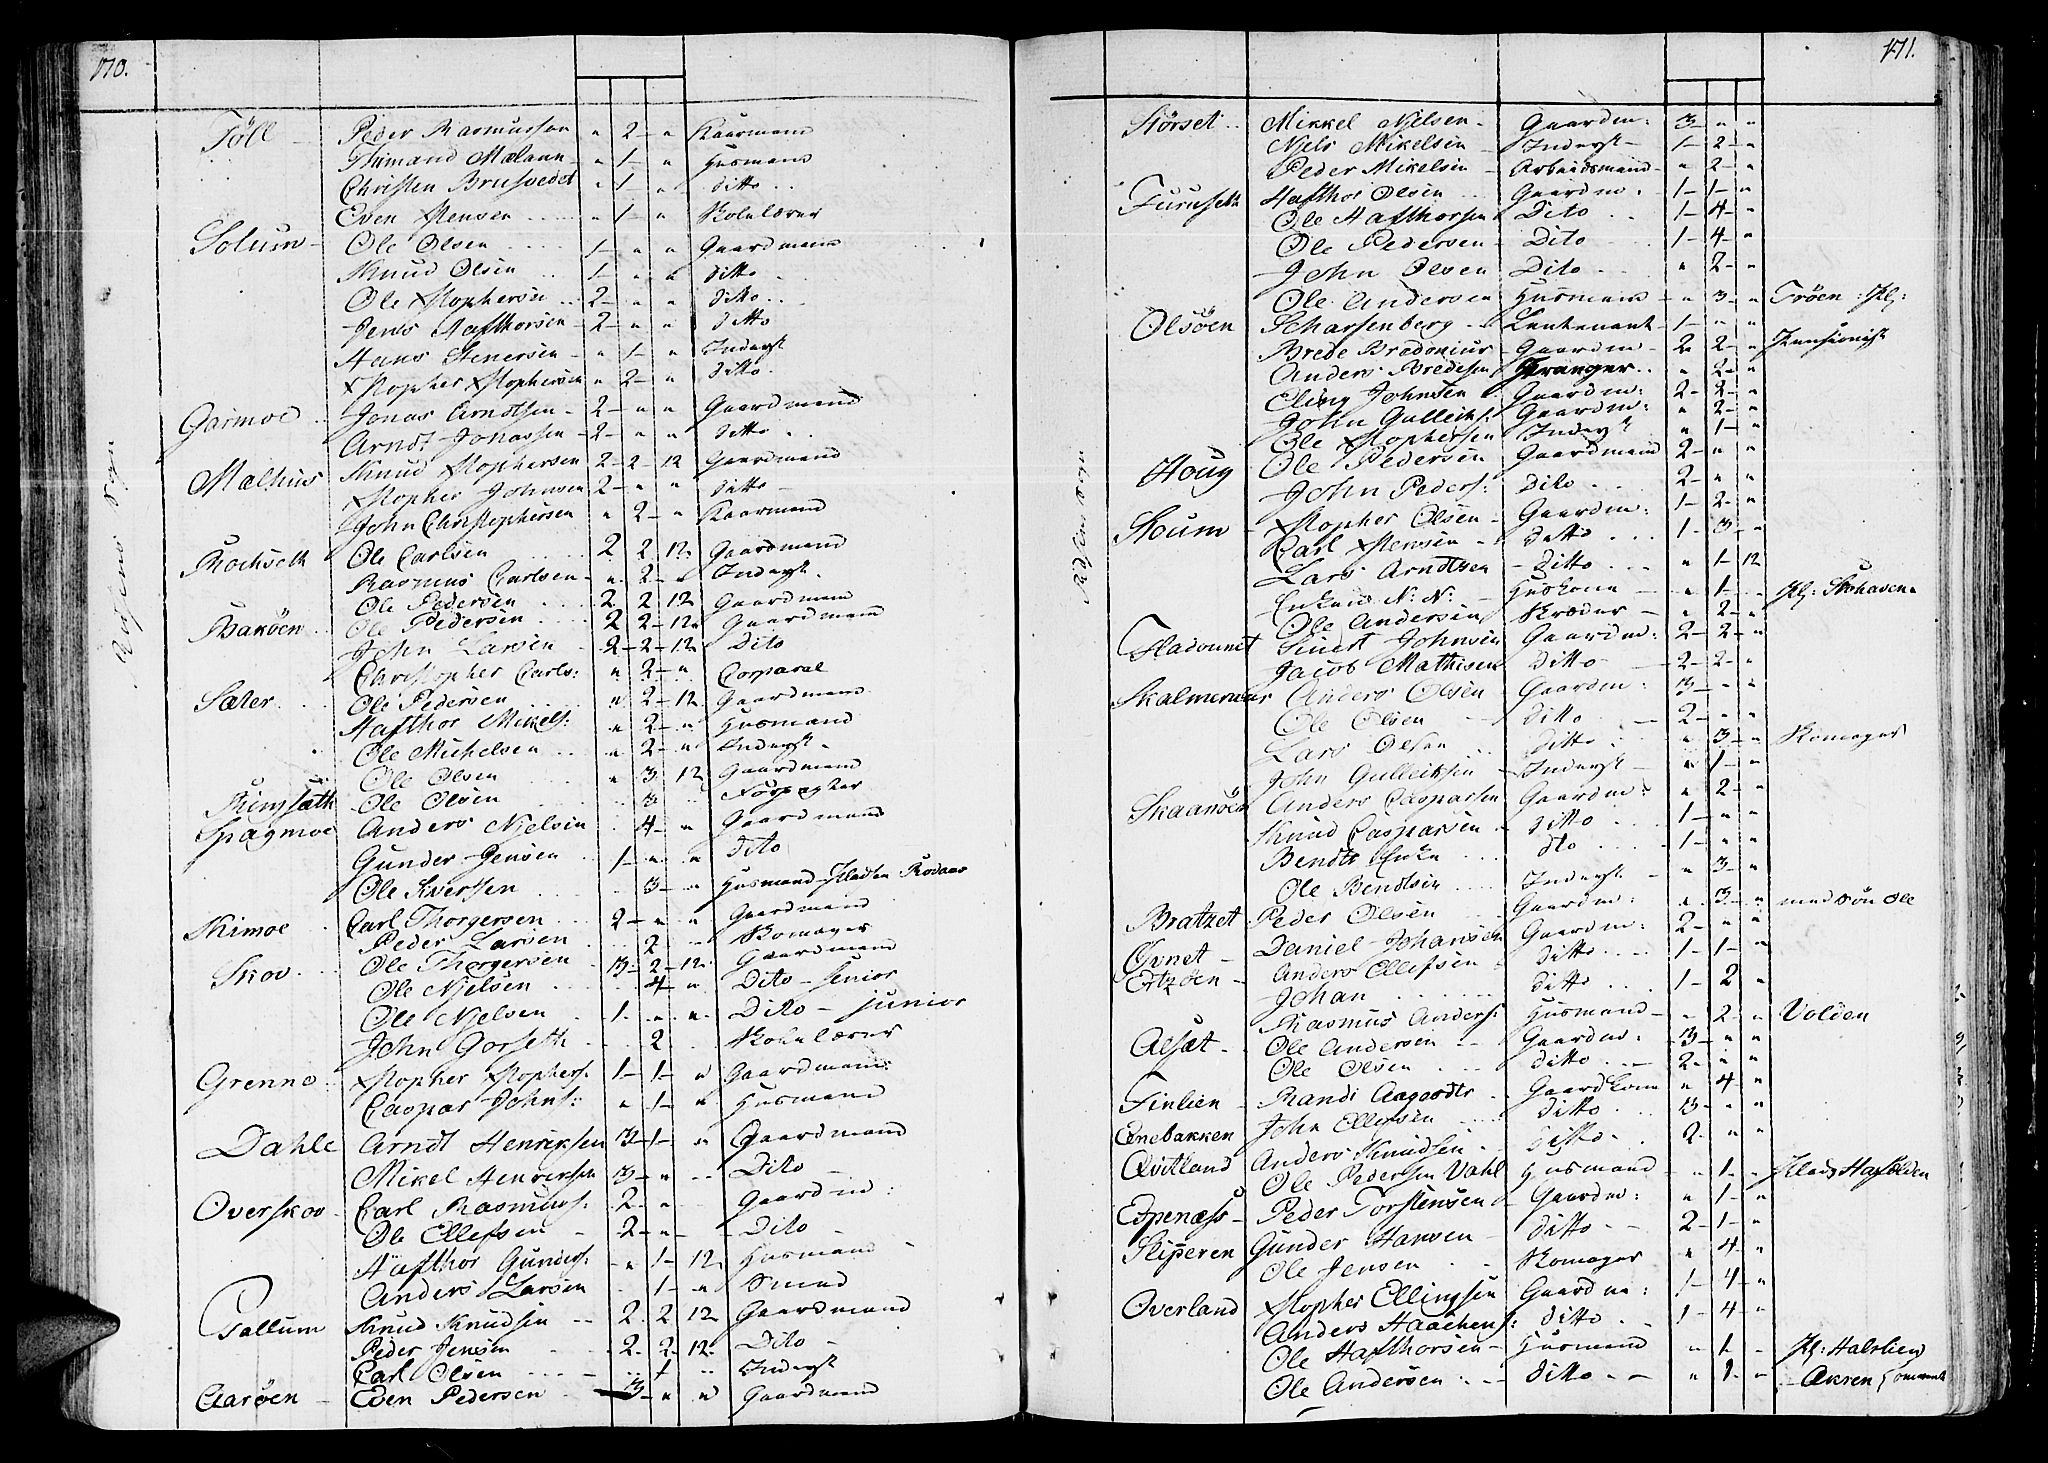 170.
Röfens Sogn
Töll Peder Rasmussen " 2 " Kaarmand
Thimand Mælann " 1 " Husmand
Christen Brusvedet " 1 " ditto
Even Xstensen " 1 " Skolelærer
Solum Ole Olsen 1 " " Gaardmand
Knud Olsen 1 " " ditto
Ole Xstophersen 2 " " ditto
Jens Hafthorsen 2 " " ditto
Hans Stenersen " 1 " Inderst
Xstopher Xstophersen " 2 " ditto
Garmoe Jonas Arndtsen 2 " " Gaardmand
Arndt Jonassen 2 " " ditto
Mælhuus Knud Xstophersen 2 2 12 Gaardmand
Xstopher Johnsen 2 " " ditto
John Christophersen " 2 " Kaarmand
Rochseth Ole Carlsen 2 2 12 Gaardmand
Rasmus Carlsen " 2 " Inderst
Ole Pedersen 2 2 12 Gaardmand
Baköen Ole Pedersen 2 2 12 Gaardmand
John Larsen 2 2 12 Dito
Christopher Carls: " 2 " Corporal
Sæter Ole Pedersen " 2 12 Gaardmand
Hafthor Mikels: " 2 " Husmand
Ole Michelsen " 2 " Inderst
Ole Olsen " 3 12 Gaardmand
Ringsæth Ole Olsen 3 Forpagter
Spagmoe Anders Njelsen 4 " Gaardmand
Gunder Jensen 1 " " Dito
Ole Siversen 3 " Husmand Pladsen Rodaas
Kimoe Carl Thorgersen 2 " " Gaardmand
Peder Larsen 2 Skomager
Skov Ole Thorgersen 3 2 12 Gaardmand
Ole Njelsen 4 " Dito senior
Ole Njelsen 1 " " Dito junior
John Gorseth 2 Skolelærer
Grenne Xstopher Xstophers: 1 1 " Gaardmand
Caspar Johns: " 1 " Husmand
Dahle Arndt Henriksen 3 1 " Gaardmand
Mikel Henriksen 3 " " Dito
Overskov Carl Rasmuss: 2 " Gaardm:
Ole Ellefsen 2 " Dito
Hafthor Gunders: " 1 12 Husmand
Anders Larsen 1 " Smed
Gallum Knud Knudsen 2 2 12 Gaardmand
Peder Jensen 2 2 12 Dito
Carl Olsen 1 " Inderst
Aaröen Even Pedersen 3 " " Gaardmand
171.
Störset Mikkel Njelsen Gaardm: 3 " "
Njels Mikelsen Inderst 1 2 "
Peder Mikelsen Arbeidsmand " 2 "
Furuseth Hafthor Olsen Gaardm: 1 1 "
Ole Hafthorsen Dito 1 4 "
Ole Pedersen Dito 1 4 "
John Olsen Dito " 2 "
Ole Andersen Husmand " 3 " Tröen Pl:
Olsöen Scharfenberg Leutenant 1 " " Pensionist
Brede Bredonius Gaardm 2 2 "
Anders Bredesen " 2 "
Eling Johnsen Gaardm: 2 2 "
John Gulleiks: Gaardm: " 2 "
Ole Xstophersen Inderst " 1 "
Houg Ole Pedersen Gaardmand 2 " "
John Peders: Dito 2 " "
Skoum Xstopher Olsen Gaardm: 1 2 "
Carl Xstensen ditto 1 3 "
Lars Arndtsen Ditto " 1 12
Enken N: N: Huskone " 1 Pl: Stohaven
Ole Andersen Skræder " 2 "
Fladvunet Sivert Johnsen Gaardm: 2 2 "
Jacob Mathisen ditto 2 2 "
Anders Olsen Gaardm: 3 " "
Ole Olsen ditto 2 " "
Lars Olsen ditto " 3 " Skomager
John Gulleiksen Inderst " 1 "
Skaaröen Anders Casparsen Gaardm: " 2 "
Knud Casparsen ditto 1 " "
Bendts Enke dto 1 " "
Ole Bendtsen Inderst " 3 "
Bratzet Peder Olsen Gaardm: " 3 " med Sön Ole
Ovnet Daniel Johansen Gaardm: 2 " "
Ertzöen Anders Ellefsen Ditto 1 1 "
Johan ditto 1 2 "
Rasmus Anders: Husmand " 2 " Volden
Alsæt Ole Andersen Gaardm: 3 " "
Ole Olsen ditto 2 " "
Finlien Randi Aagaards Gaardkone " 4 "
Enebakken John Ellefsen Ditto 3 " "
Qvitland Anders Knudsen ditto 2 " "
Ole Pedersen Vahl Husmand " 1 "
Espenæss Peder Torstensen Gaardm: " 1 "
Sliperen Gunder Hansen ditto 2 1 "
Ole Jensen Skomager " 4 "
Overland Xstopher Ellingsen Gaardm: 1 4 "
Anders Haachens: ditto 1 4 "
Ole Hafthorsen Husmand " 1 Pl: Halslien
Ole Andersen ditto " 1 " Økren